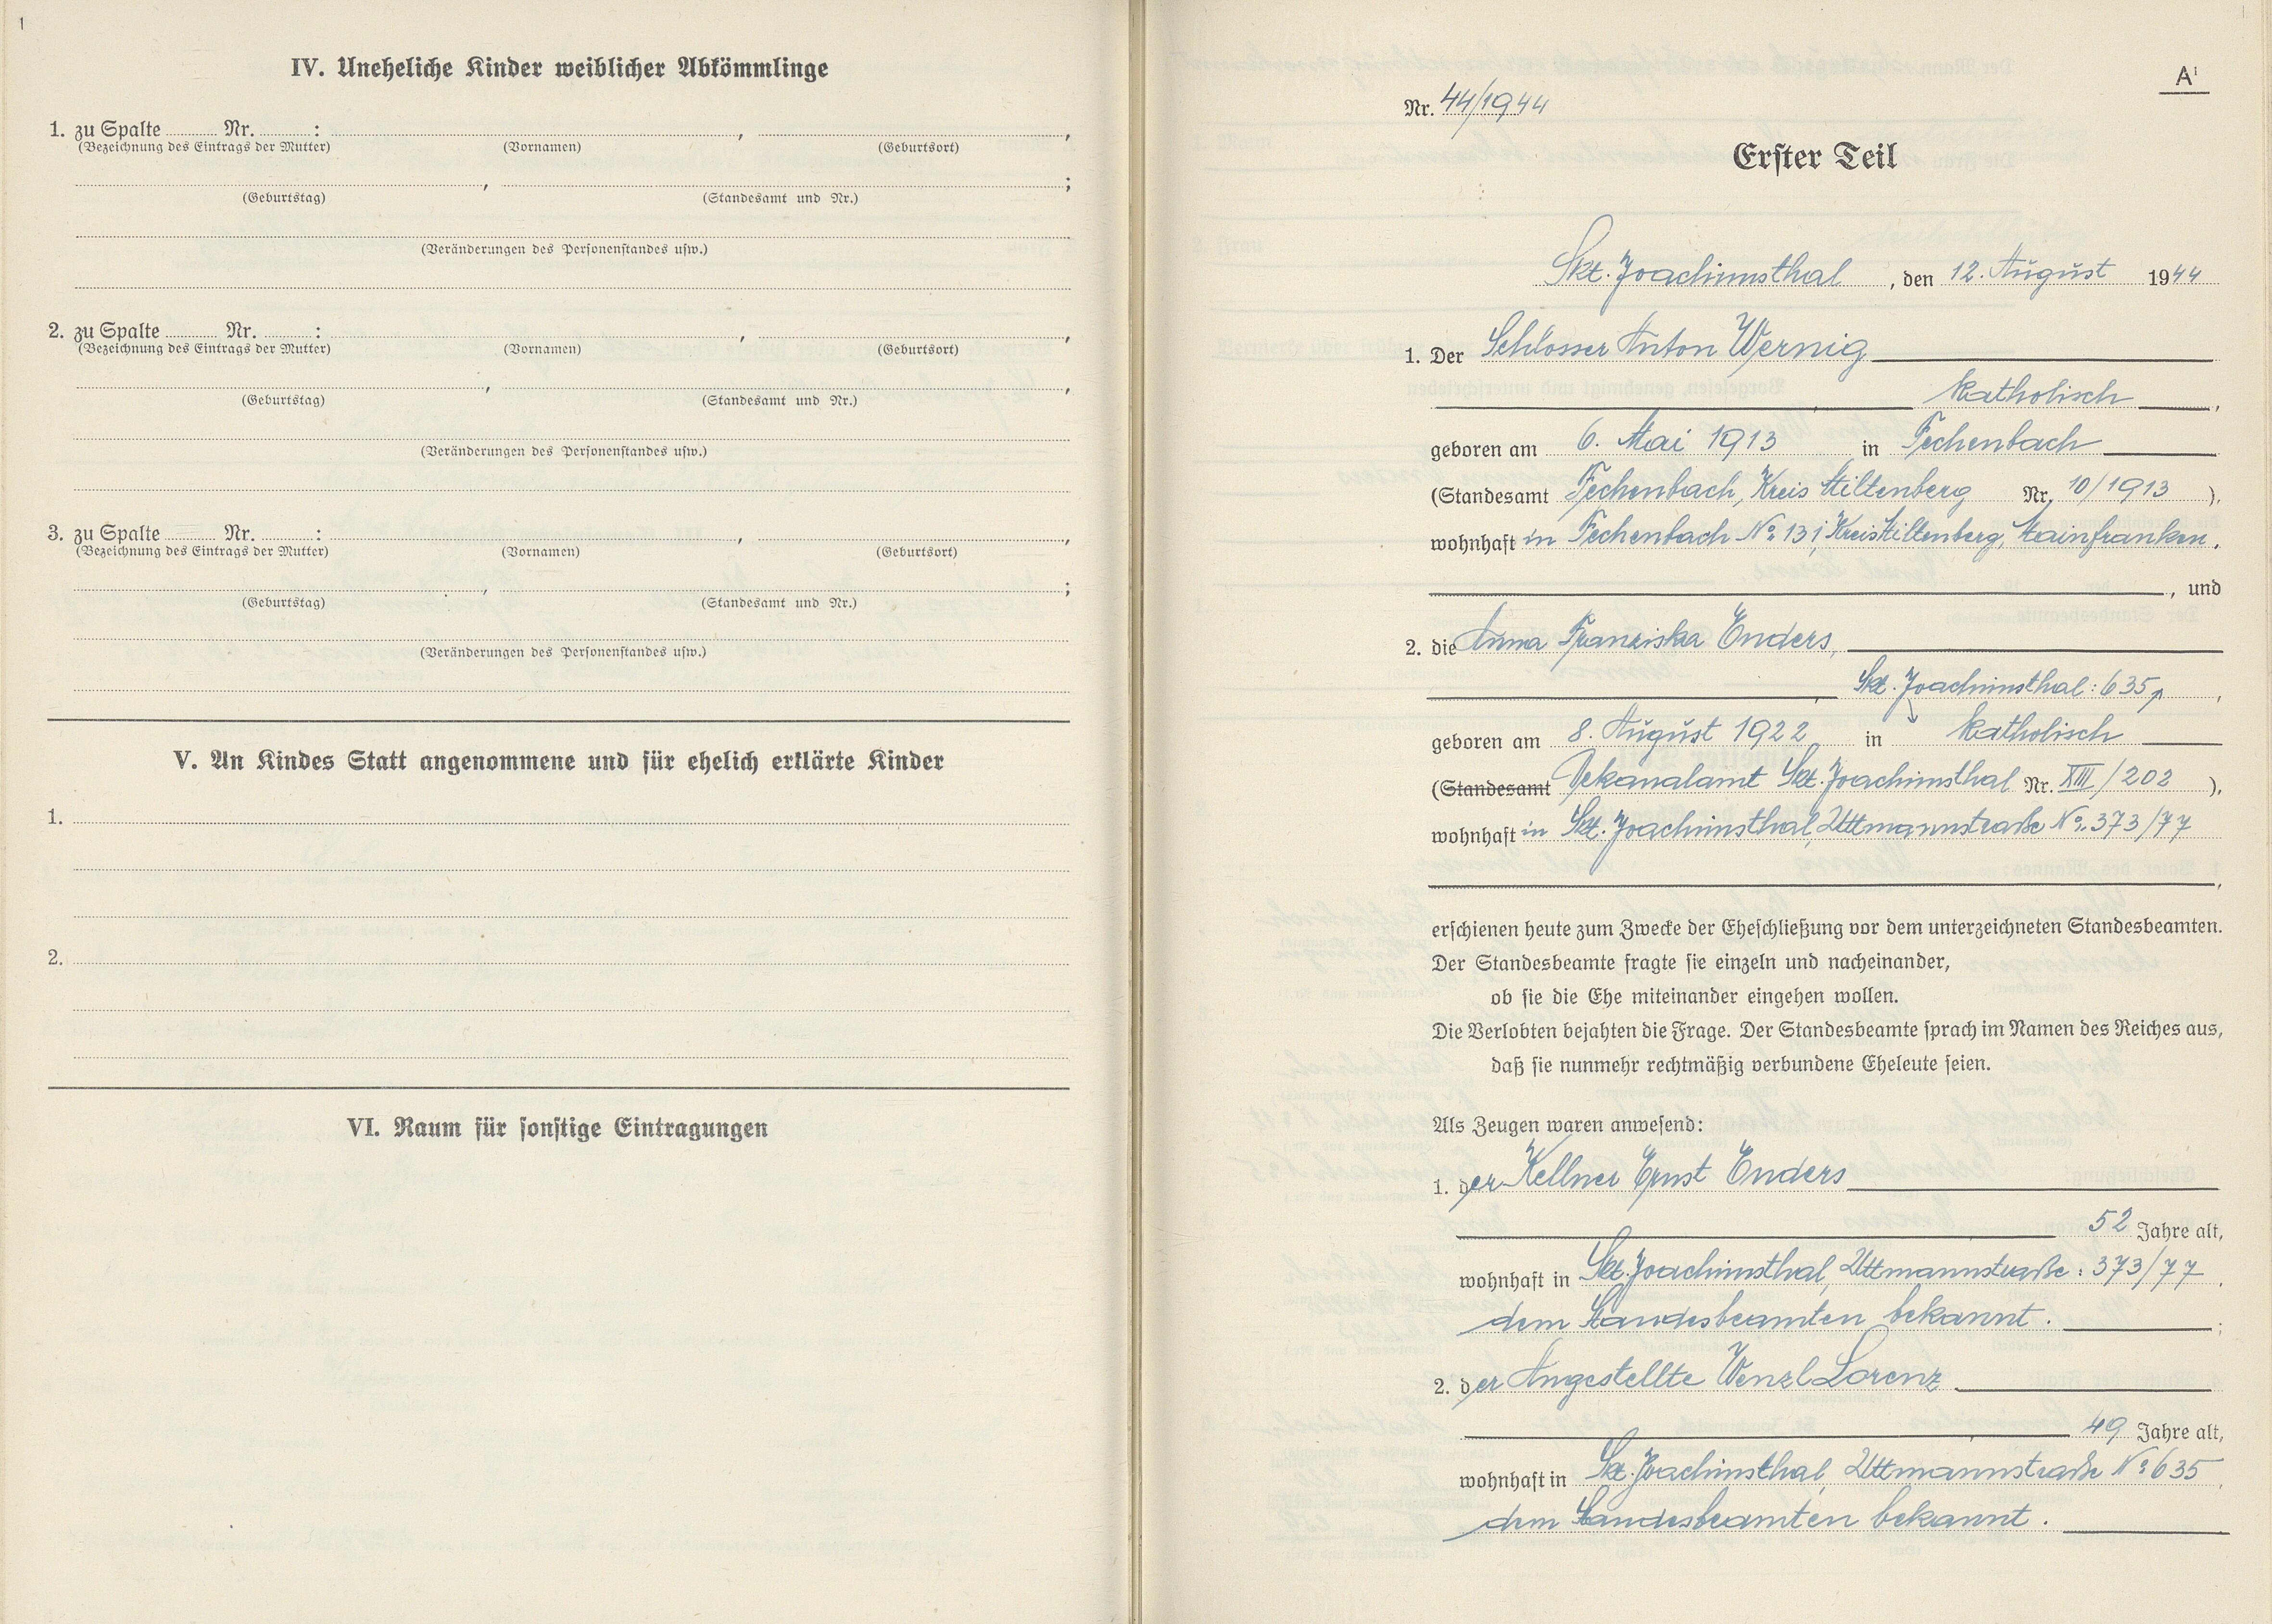 1
IV. Uneheliche Kinder weiblicher Abkömmlinge
1. zu Spalte ........ Nr. ........ : ........ , ........ ,
(Bezeichnung des Eintrags der Mutter) (Vornamen) (Geburtsort)
........ , ........ ;
(Geburtstag) (Standesamt und Nr.)
(Veränderungen des Personenstandes usw.)
2. zu Spalte ........ Nr. ........ : ........ , ........ ,
(Bezeichnung des Eintrags der Mutter) (Vornamen) (Geburtsort)
........ , ........ ,
(Geburtstag) (Standesamt und Nr.)
(Veränderungen des Personenstandes usw.)
3. zu Spalte ........ Nr. ........ : ........ , ........ ,
(Bezeichnung des Eintrags der Mutter) (Vornamen) (Geburtsort)
........ , ........ ;
(Geburtstag) (Standesamt und Nr.)
(Veränderungen des Personenstandes usw.)
V. An Kindes Statt angenommene und für ehelich erklärte Kinder
1.
2.
VI. Raum für sonstige Eintragungen
A¹
Nr. 44/1944
Erster Teil
Skt. Joachimsthal, den 12. August 1944
1. Der Schlosser Anton Wernig
katholisch,
geboren am 6. Mai 1913 in Fechenbach
(Standesamt Fechenbach, Kreis Miltenberg Nr. 10/1913),
wohnhaft in Fechenbach No 131, Kreis Miltenberg, Mainfranken.
, und
2. die Anna Franziska Enders,
Skt. Joachimsthal: 635,
geboren am 8. August 1922 in katholisch
(Standesamt Dekanalamt Skt. Joachimsthal Nr. XIII/202),
wohnhaft in Skt. Joachimsthal, Uttmannstraße No. 373/77
,
erschienen heute zum Zwecke der Eheschließung vor dem unterzeichneten Standesbeamten.
Der Standesbeamte fragte sie einzeln und nacheinander,
ob sie die Ehe miteinander eingehen wollen.
Die Verlobten bejahten die Frage. Der Standesbeamte sprach im Namen des Reiches aus,
daß sie nunmehr rechtmäßig verbundene Eheleute seien.
Als Zeugen waren anwesend:
1. der Kellner Ernst Enders
52 Jahre alt,
wohnhaft in Skt. Joachimsthal, Uttmannstraße: 373/77.
dem Standesbeamten bekannt. ;
2. der Angestellte Wenzl Lorenz
49 Jahre alt,
wohnhaft in Skt. Joachimsthal, Uttmannstraße No 635,
dem Standesbeamten bekannt.